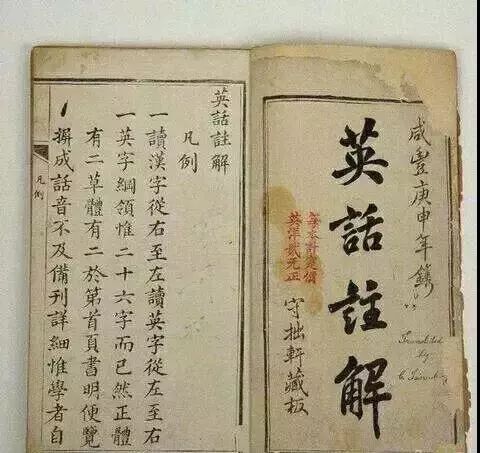 咸豐庚申年鐫
Translated
by
英話註解
每本計價
英洋貳元正
守拙軒藏板
英話註解
凡例
一讀漢字從右至左讀英字從左至右
一英字綱領惟二十六字而已然正體
有二草體有二於第首頁書明便覽
一撰成話音不及備刊詳細惟學者自
凡例